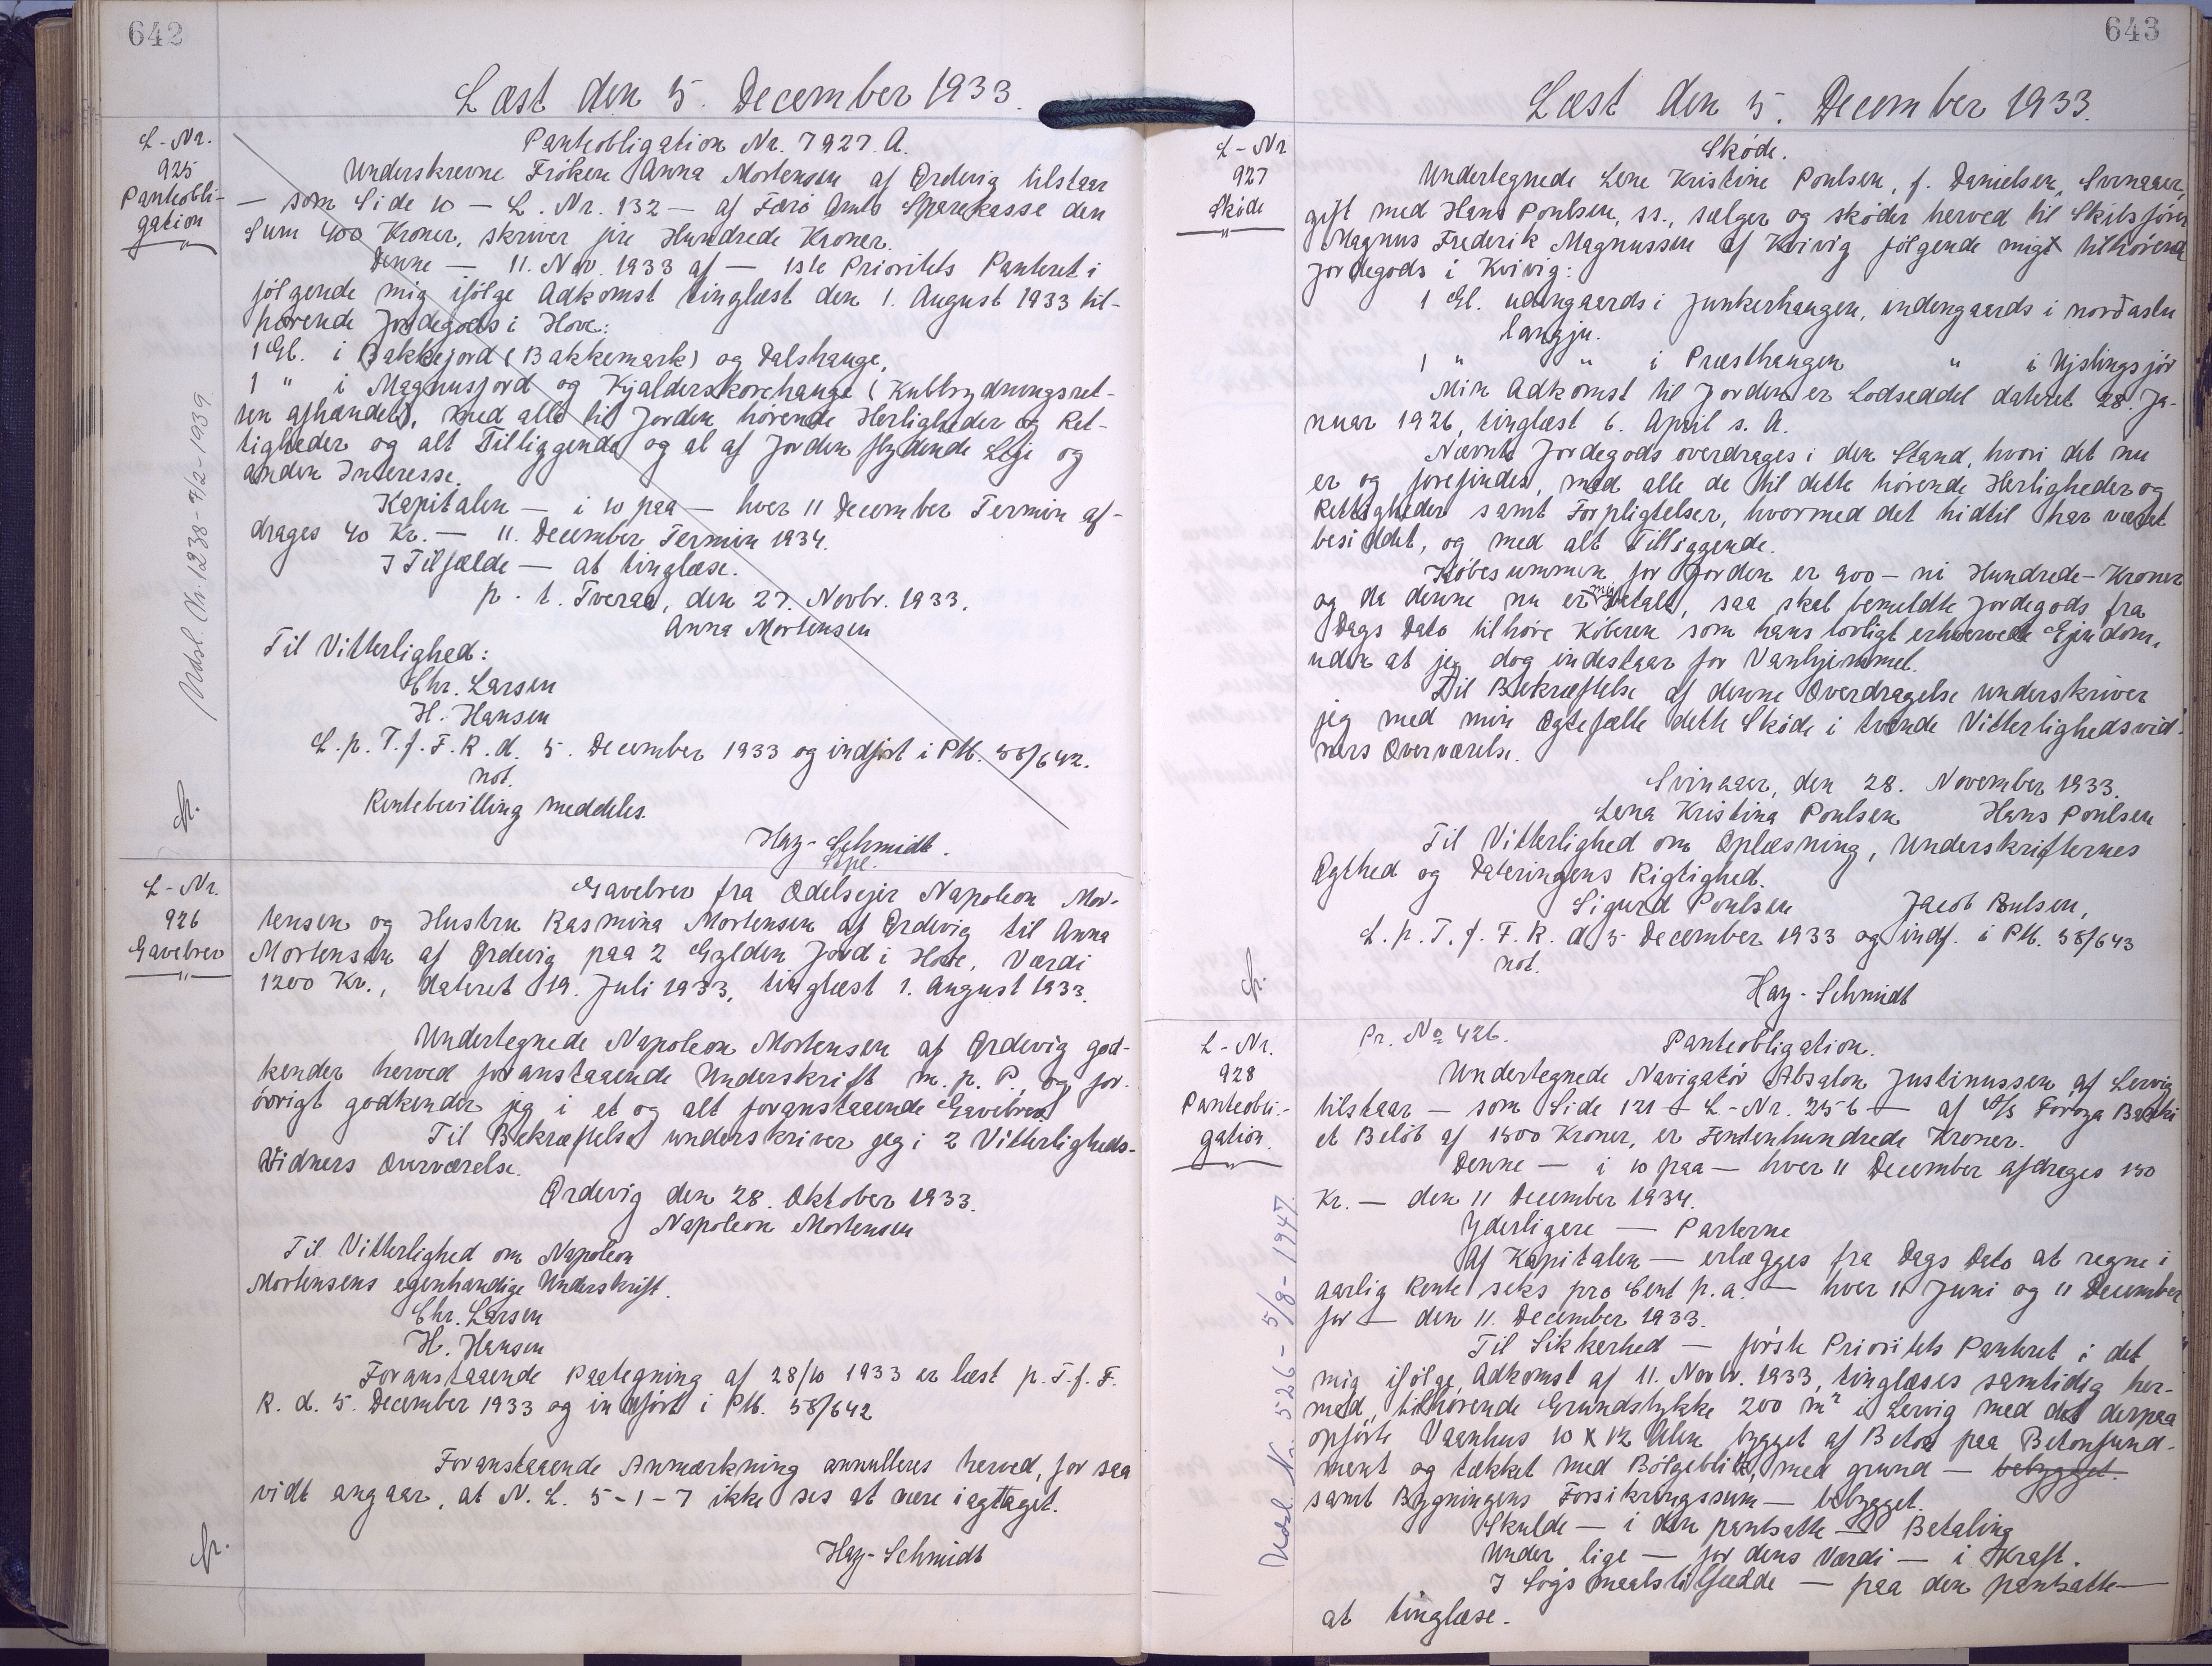 642
Læst den 5. December 1933.
L-Nr.
925
Panteobli-
gation
Panteobligation Nr. 7927 A.
Underskrevne Fröken Anna Mortensen af Ördevig tilstaar
— som Side 10 — L. Nr. 132 — af Færö Amts Sparekasse den
Sum 400 Kroner, skriver fire Hundrede Kroner.
Denne — 11. Nov. 1933 af — 1ste Prioritets Panteret i
fölgende mig ifölge Adkomst tinglæst den 1. August 1933 til-
hörende Jordegods i Hove:
1 Gl. i Bakkejord (Bakkemark) og Dalshauge,
1 " i Magnusjord og Kjalderskorehauge (Kultbrydningsret-
ten afhændet), med alle til Jorden hörende Herligheder og Ret-
tigheder og alt Tilliggende og al af Jorden flydende Leje og
anden Interesse.
Kapitalen — i 10 paa — hver 11 December Termin af-
drages 40 Kr. — 11. December Termin 1934.
I Tilfælde — at tinglæse.
p. t. Tveraa, den 27. Novbr. 1933.
Anna Mortensen
Til Vitterlighed:
Chr. Larsen
H. Hansen
L. p. T. f. F. R. d. 5. December 1933 og indfört i Ptb. 58/642.
not.
Rentebevilling meddeles.
Hay-Schmidt.
Udsl. Nr. 1238 - 9/2 - 1939
L-Nr.
926
Gavebrev
Gavebrev fra Odelsejer Napoleon Mor-
tensen og Hustru Rasmina Mortensen af Ördevig til Anna
Mortensen af Ördevig paa 2 Gylden Jord i Hove, Værdi
1200 Kr., dateret 19. Juli 1933, tinglæst 1. August 1933.
Undertegnede Napoleon Mortensen af Ördevig god-
kender herved foranstaaende Underskrift m. p. P., og for-
övrigt godkender jeg i et og alt foranstaaende Gavebrev.
Til Bekræftelse underskriver jeg i 2 Vitterligheds-
Vidners Overværelse.
Ördevig den 28. Oktober 1933.
Napoleon Mortensen
Til Vitterlighed om Napoleon
Mortensens egenhændige Underskrift.
Chr. Larsen
H. Hansen
Foranstaaende Paategning af 28/10 1933 er læst p. T. f. F.
R. d. 5. December 1933 og indfört i Ptb. 58/642
Foranstaaende Anmærkning annulleres herved, for saa
vidt angaar, at N. L. 5-1-7 ikke ses at være iagttaget.
Hay-Schmidt
643
Læst den 5. December 1933.
L-Nr
927
Sköde
Sköde.
Undertegnede Lene Kristine Poulsen, f. Danielsen, Svinaaer,
gift med Hans Poulsen, ss., sælger og sköder herved til Skibsförer
Magnus Frederik Magnussen af Kvivig fölgende migt tilhörende
Jordegods i Kvivig:
1 Gl. udengaards i Junkerhaugen, indengaards i norðastu
langju.
1 " " i Præsthaugen " i Ujslingsjör
Min Adkomst til Jorden er Lodseddel dateret 28. Ja-
nuar 1926, tinglæst 6. April s. A.
Nævnte Jordegods overdrages i den Stand, hvori det nu
er og forefindes, med alle de til dette hörende Herligheder og
Rettigheder samt Forpligtelser, hvormed det hidtil har været
besiddet, og med alt Tilliggende.
Köbesummen for Jorden er 900 — ni Hundrede — Kroner
og da denne nu er mig betalt, saa skal bemeldte Jordegods fra
Dags Dato tilhöre Köberen som hans lovligt erhvervede Ejendom,
uden at jeg dog indestaar for Vanhjemmel.
Til Bekræftelse af denne Overdragelse underskriver
jeg med min Ægtefælle dette Sköde i tvende Vitterlighedsvid-
ners Overværelse.
Svinaaer, den 28. November 1933.
Lena Kristina Poulsen Hans Poulsen
Til Vitterlighed om Oplæsning, Underskrifternes
Ægthed og Dateringens Rigtighed.
Sigurd Poulsen Jacob Poulsen,
L. p. T. f. F. R. d. 5 December 1933 og indf. i Ptb. 58/643
not.
Hay-Schmidt
L-Nr.
928
Panteobli-
gation.
Pr. No 426. Panteobligation.
Undertegnede Navigatör Absalon Justinussen af Lervig
tilstaar — som Side 121 — L-Nr. 256 — af A/S Föroya Banki
et Belöb af 1500 Kroner, er Femtenhundrede Kroner.
Denne — i 10 paa — hver 11 December afdrages 150
Kr. — den 11 December 1934.
Yderligere — Parterne
Af Kapitalen — erlægges fra Dags Dato at regne i
aarlig Rente seks pro Cent p. a. — hver 11 Juni og 11 December
for — den 11. December 1933.
Til Sikkerhed — förste Prioritets Panteret i det
mig ifölge Adkomst af 11. Novbr. 1933, tinglæses samtidig her-
med, tilhörende Grundstykke 200 m² i Lervig med det derpaa
opförte Vaanhus 10 x 12 Alen bygget af Beton paa Betonfunda-
ment og tækket med Bölgeblik, med grund — bebygget.
samt Bygningens Forsikringssum — bebygget.
Skulde — i den pantsatte — Betaling
Under lige — for dens Værdi — i Kraft.
I Sögsmaalstilfælde — paa den pantsatte —
at tinglæse.
Udsl. Nr. 526 - 5/8 - 1947.